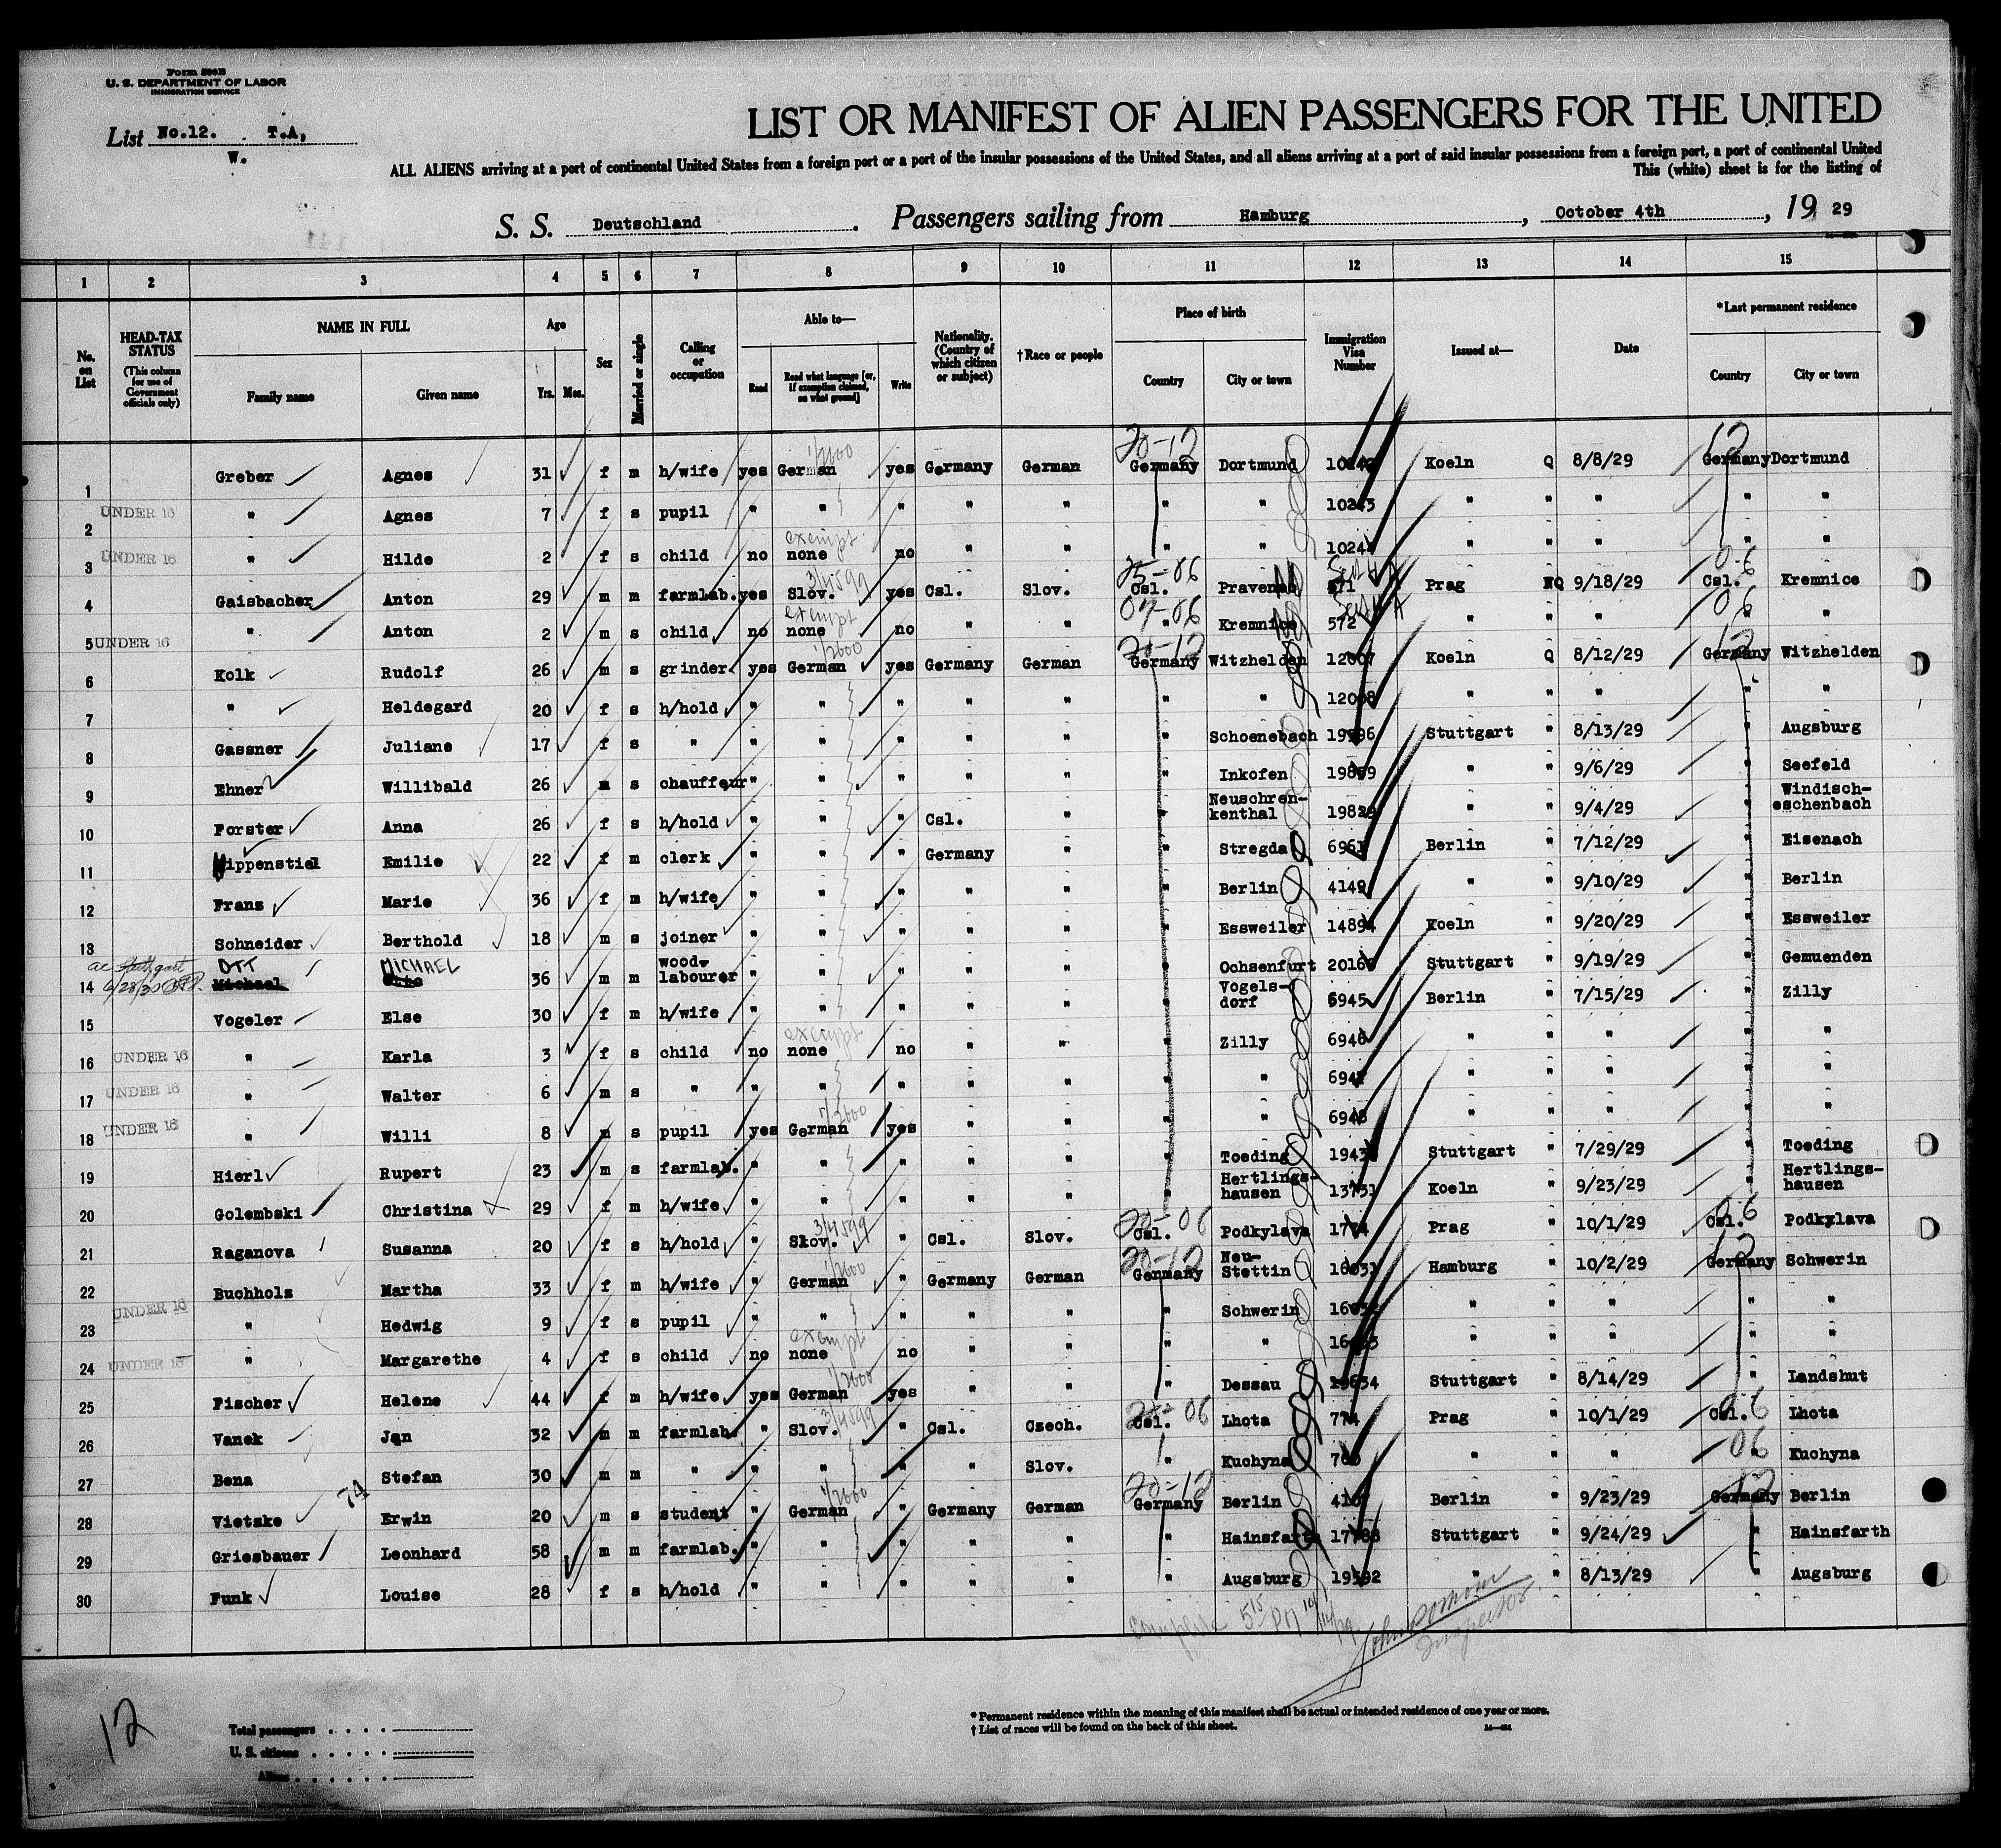 Form 500B
U. S. DEPARTMENT OF LABOR
IMMIGRATION SERVICE
List No.12. T.A,
W.
LIST OR MANIFEST OF ALIEN PASSENGERS FOR THE UNITED
ALL ALIENS arriving at a port of continental United States from a foreign port or a port of the insular possessions of the United States, and all aliens arriving at a port of said insular possessions from a foreign port, a port of continental United
This (white) sheet is for the listing of
S. S. Deutschland . Passengers sailing from Hamburg , October 4th , 19 29
1 2 3 4 5 6 7 8 9 10 11 12 13 14 15
No. on List
HEAD-TAX STATUS (This column for use of Government officials only)
NAME IN FULL Family name Given name
Age Yrs. Mos.
Sex
Married or single
Calling or occupation
Able to— Read Read what language [or, if exemption claimed, on what ground] Write
Nationality. (Country of which citizen or subject)
†Race or people
Place of birth Country City or town
Immigration Visa Number
Issued at—
Date
*Last permanent residence Country City or town
1 Greber Agnes 31 f m h/wife yes German 1/2600 yes Germany German 20-12 Germany Dortmund Koeln Q 8/8/29 12 Germany Dortmund
2 UNDER 16 " Agnes 7 f s pupil " " " " " " " 10243 " " " " "
3 UNDER 16 " Hilde 2 f s child no exempt none no " " " " " " " " "
4 Gaisbacher Anton 29 m m farmlab. yes 3/4599 Slov. yes Csl. Slov. 25-06 Csl. 571 Prag NQ 9/18/29 06 Csl. Kremnice
5 UNDER 16 " Anton 2 m s child no exempt none no " " 07-06 " Kremnice 572 " " " 06 " "
6 Kolk Rudolf 26 m s grinder yes 1/2600 German yes Germany German 20-12 Germany Witzhelden 12007 Koeln Q 8/12/29 12 Germany Witzhelden
7 " Heldegard 20 f s h/hold " " " " " " " 12008 " " " " "
8 Gassner Juliane 17 f s " " " " " " " Schoenebach 19596 Stuttgart " 8/13/29 " Augsburg
9 Ehner Willibald 26 m s chauffeur " " " " " " Inkofen 19899 " " 9/6/29 " Seefeld
10 Forster Anna 26 f s h/hold " " " Csl. " " Neuschren-kenthal 19829 " " 9/4/29 " Windisch-eschenbach
11 Wippenstiel Emilie 22 f m clerk " " " Germany " " Stregda 6961 Berlin " 7/12/29 " Eisenach
12 Franz Marie 36 f m h/wife " " " " " " Berlin 4149 " " 9/10/29 " Berlin
13 Schneider Berthold 18 m s joiner " " " " " " Essweiler 14894 Koeln " 9/20/29 " Essweiler
14 OTT MICHAEL 36 m m wood-labourer " " " " " " Ochsenfurt Stuttgart " 9/19/29 " Gemuenden
15 Vogeler Else 30 f m h/wife " " " " " " Vogels-dorf 6945 Berlin " 7/15/29 " Zilly
16 UNDER 16 " Karla 3 f s child no exempt none no " " " Zilly 6946 " " " " "
17 UNDER 16 " Walter 6 m s " " " " " " " " 6947 " " " " "
18 UNDER 16 " Willi 8 m s pupil yes 1/2600 German yes " " " " 6948 " " " " "
19 Hierl Rupert 23 m s farmlab. " " " " " " Toeding Stuttgart " 7/29/29 " Toeding
20 Golembski Christina 29 f m h/wife " " " " " " Hertlings-hausen 13751 Koeln " 9/23/29 " Hertlings-hausen
21 Raganova Susanna 20 f s h/hold " 3/4599 Slov. " Csl. Slov. 20-06 Csl. Podkylava Prag " 10/1/29 06 Csl. Podkylava
22 Buchholz Martha 33 f m h/wife " 1/2600 German " Germany German 20-12 Germany Neu-Stettin Hamburg " 10/2/29 12 Germany Schwerin
23 UNDER 16 " Hedwig 9 f s pupil " " " " " " Schwerin " " " " "
24 UNDER 16 " Margarethe 4 f s child no exempt none no " " " " " " " " "
25 Fischer Helene 44 f m h/wife yes 1/2600 German yes " " " Dessau Stuttgart " 8/14/29 " Landshut
26 Vanek Jan 32 m m farmlab. " 3/4599 Slov. " Csl. Czech. 06 Csl. Lhota 774 Prag " 10/1/29 06 Csl. Lhota
27 Bena Stefan 30 m m " " " " " Slov. " Kuchyna " " " 06 " Kuchyna
28 Vietzke 74 Erwin 20 m s student " 1/2600 German " Germany German 20-12 Germany Berlin Berlin " 9/23/29 12 Germany Berlin
29 Griesbauer Leonhard 58 m m farmlab. " " " " " " Hainsfarth 17788 Stuttgart " 9/24/29 " Hainsfarth
30 Funk Louise 28 f s h/hold " " " " " " Augsburg 19592 " " 8/13/29 " Augsburg
Complete 5 15 PM 10/14/29
Inspector
12
Total passengers
U. S. citizens
Aliens
* Permanent residence within the meaning of this manifest shall be actual or intended residence of one year or more.
† List of races will be found on the back of this sheet.